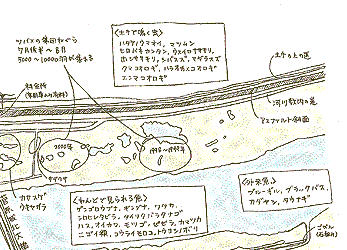 ツバメの集団ねぐら
7月後半〜8月
5000〜10000羽が集まる
<土手で鳴く虫>
ハラケノウマオイ、マツムシ
ヒロバネカンタン、ウスイロササキリ
ホシササキリ、シバスズ、マダラスズ
クマコオロギ、ハラオカメコオロギ
エンマコオロギ
土手の上の道
河川敷内の道
アスファルト斜面
料金所
2000年
1998〜1999年
カヤネズミ
ウキヤガラ
<わんどで見られる魚>
アブラボテ、ギンブナ、ワタカ
シロヒレタビラ、タイリクバラタナゴ
ハス、オイカワ、モツゴ、ゼゼラ、カマツカ
ニゴイ類、コウライモロコ、トウヨシノボリ
<外来魚>
ブルーギル、ブラックバス
カダヤシ、タウナギ